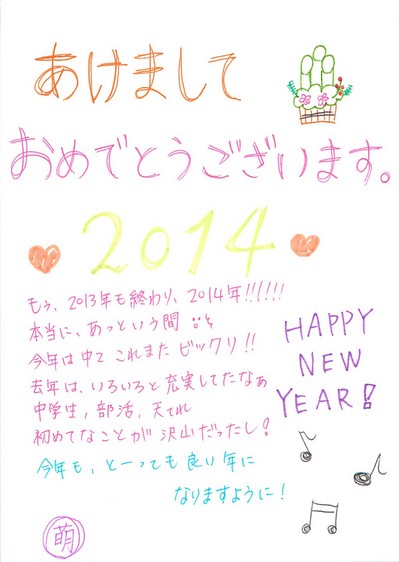 あけまして
おめでとうございます。
2014
もぅ、2013年も終わり、2014年!!!!!!
本当に、あっという間
今年は中2 これまた ビックリ!!
去年は、いろいろと充実してたなぁ
中学生,部活,天てれ
初めてなことが沢山だったし!
今年も、とーっても良い年に
なりますように!
HAPPY
NEW
YEAR!
萌